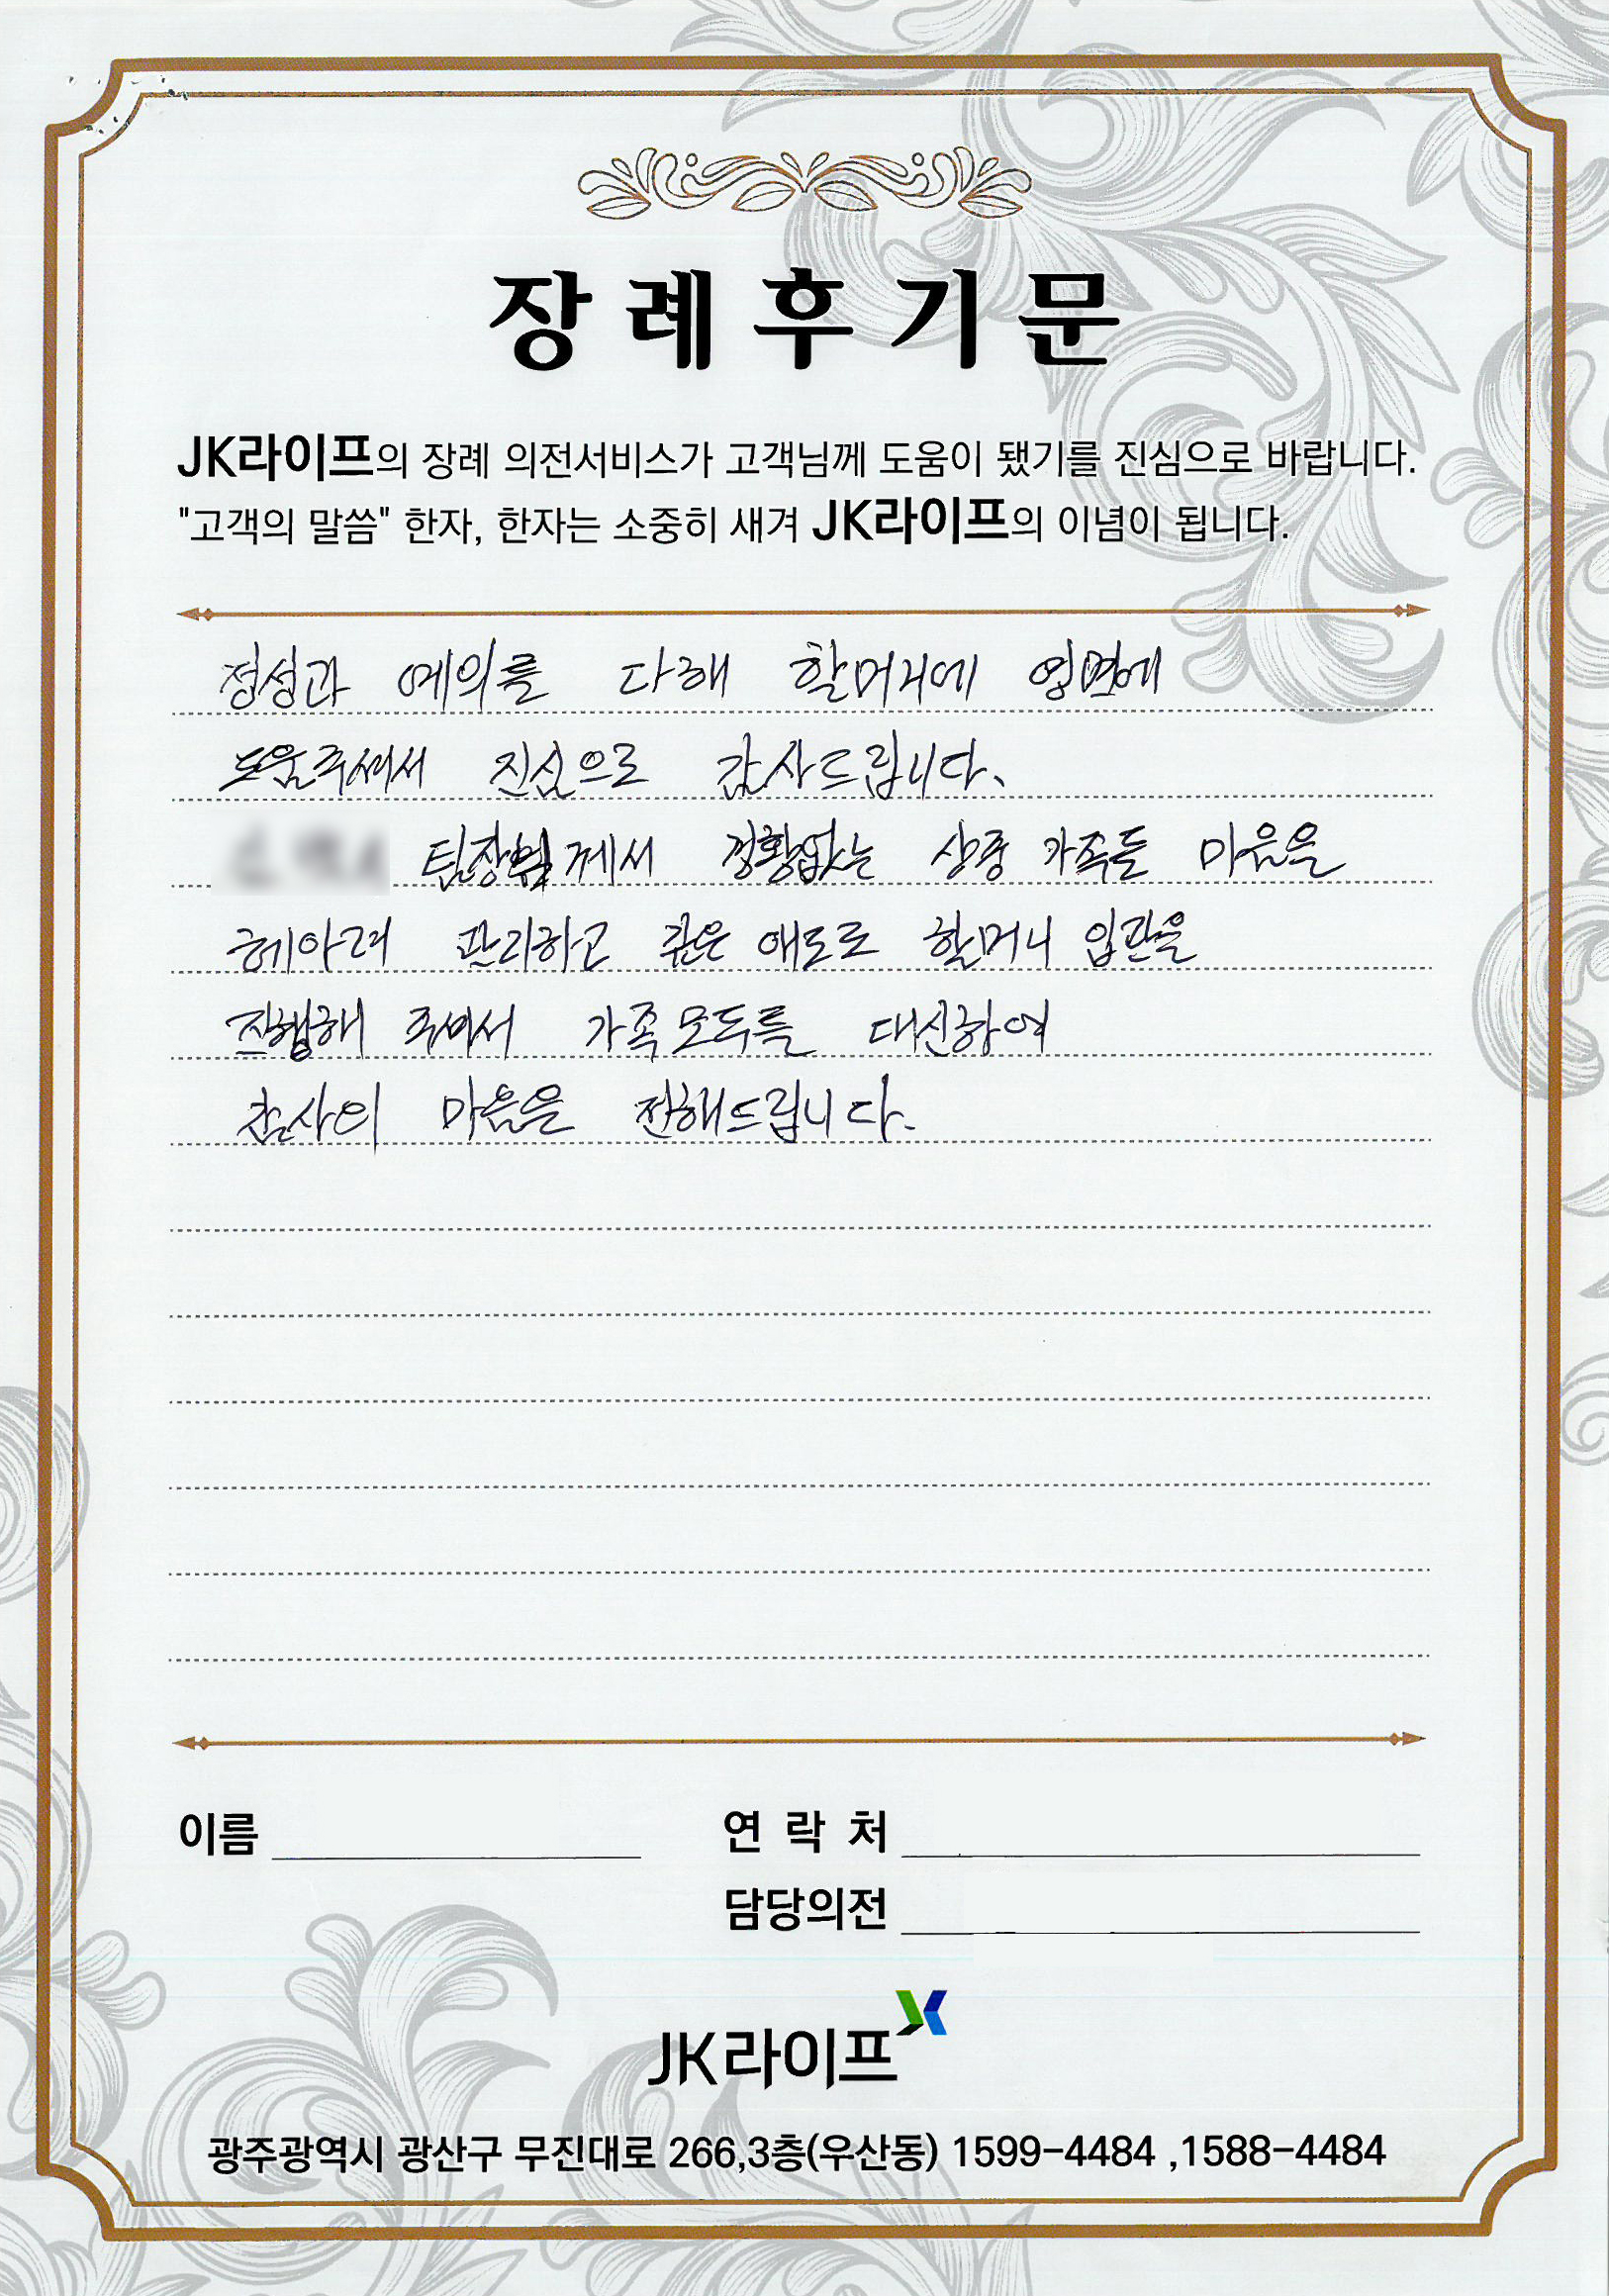 장례후기문
JK라이프의 장례 의전서비스가 고객님께 도움이 됐기를 진심으로 바랍니다.
"고객의 말씀" 한자, 한자는 소중히 새겨 JK라이프의 이념이 됩니다.
정성과 예의를 다해 할머니에 영면에
도움주셔서 진심으로 감사드립니다.
팀장님께서 경황없는 상중 가족들 마음을
헤아려 관리하고 깊은 애도로 할머니 입관을
진행해 주셔서 가족 모두를 대신하여
감사의 마음을 전해드립니다.
이름 연락처
담당의전
JK라이프
광주광역시 광산구 무진대로 266,3층(우산동) 1599-4484 ,1588-4484